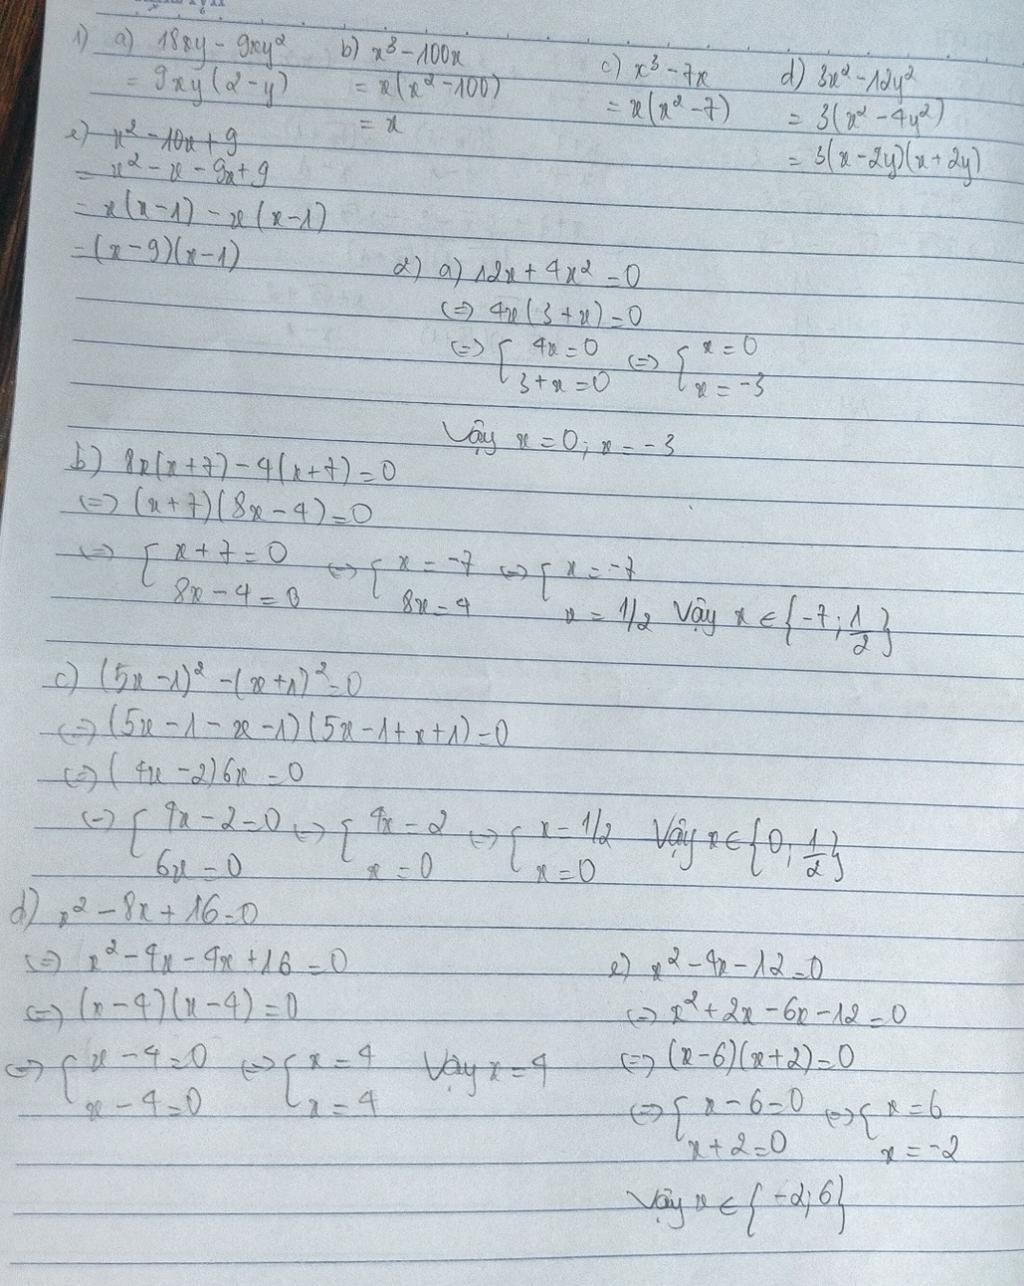 1) a) 18xy - 9xy²
= 9xy(2-y)
b) x³ - 100x
= x(x² - 100)
= x
c) x³ - 7x
= x(x² - 7)
d) 3x² - 12y²
= 3(x² - 4y²)
= 3(x - 2y)(x + 2y)
e) x² - 10x + 9
= x² - x - 9x + 9
= x(x-1) - x(x-1)
= (x-9)(x-1)
2) a) 12x + 4x² = 0
(=) 4x(3+x) = 0
(=) { 4x = 0 (=) { x = 0
3+x = 0 x = -3
Vậy x = 0; x = -3
b) 8x(x+7) - 4(x+7) = 0
(=) (x+7)(8x-4) = 0
(=) { x+7 = 0 (=) { x = -7 (=) { x = -7
8x - 4 = 0 8x = 4 x = 1/2 Vậy x ∈ {-7; 1/2}
c) (5x-1)² - (x+1)² = 0
(=) (5x - 1 - x - 1)(5x - 1 + x + 1) = 0
(=) (4x - 2)6x = 0
(=) { 4x - 2 = 0 (=) { 4x = 2 (=) { x = 1/2 Vậy x ∈ {0; 1/2}
6x = 0 x = 0 x = 0
d) x² - 8x + 16 = 0
(=) x² - 4x - 4x + 16 = 0
(=) (x-4)(x-4) = 0
(=) { x - 4 = 0 (=) { x = 4 Vậy x = 4
x - 4 = 0 x = 4
e) x² - 4x - 12 = 0
(=) x² + 2x - 6x - 12 = 0
(=) (x-6)(x+2) = 0
(=) { x - 6 = 0 (=) { x = 6
x + 2 = 0 x = -2
Vậy x ∈ {-2; 6}